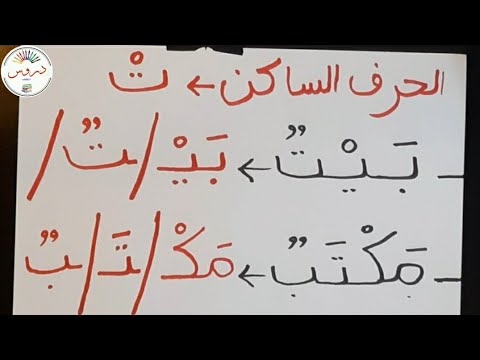 دروس
الحرف الساكن ← تْ
- بَيْتٌ ← بَيْ/تٌ/
- مَكْتَبٌ ← مَكْ/تَ/بٌ